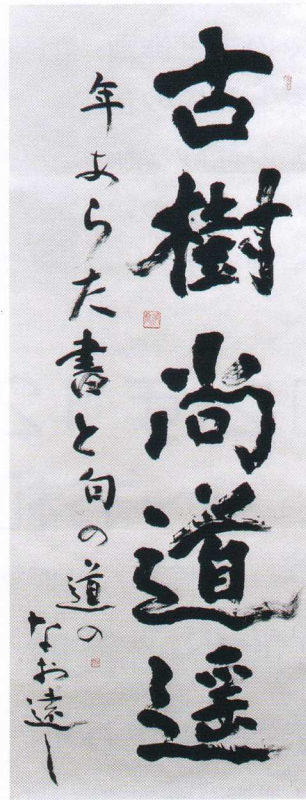 古樹尚道遥
年あらた書と句の道の
なお遠し